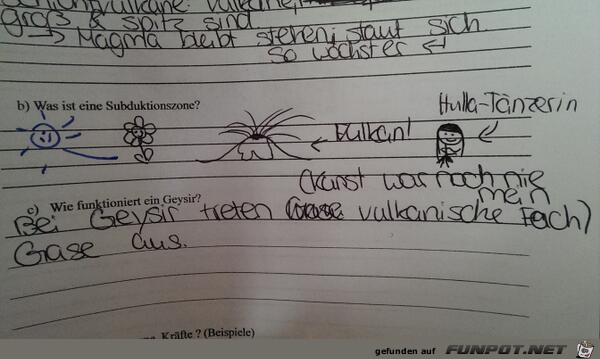 groß & spitz sind
→ Magma bleibt stehen, staut sich.
so wächst er ↵
b) Was ist eine Subduktionszone?
Hulla-Tänzerin
← Vulkan!
(Kunst war noch nie
mein
c) Wie funktioniert ein Geysir?
Bei Geysir treten vulkanische Fach)
Gase aus.
Kräfte ? (Beispiele)
gefunden auf FUNPOT.NET